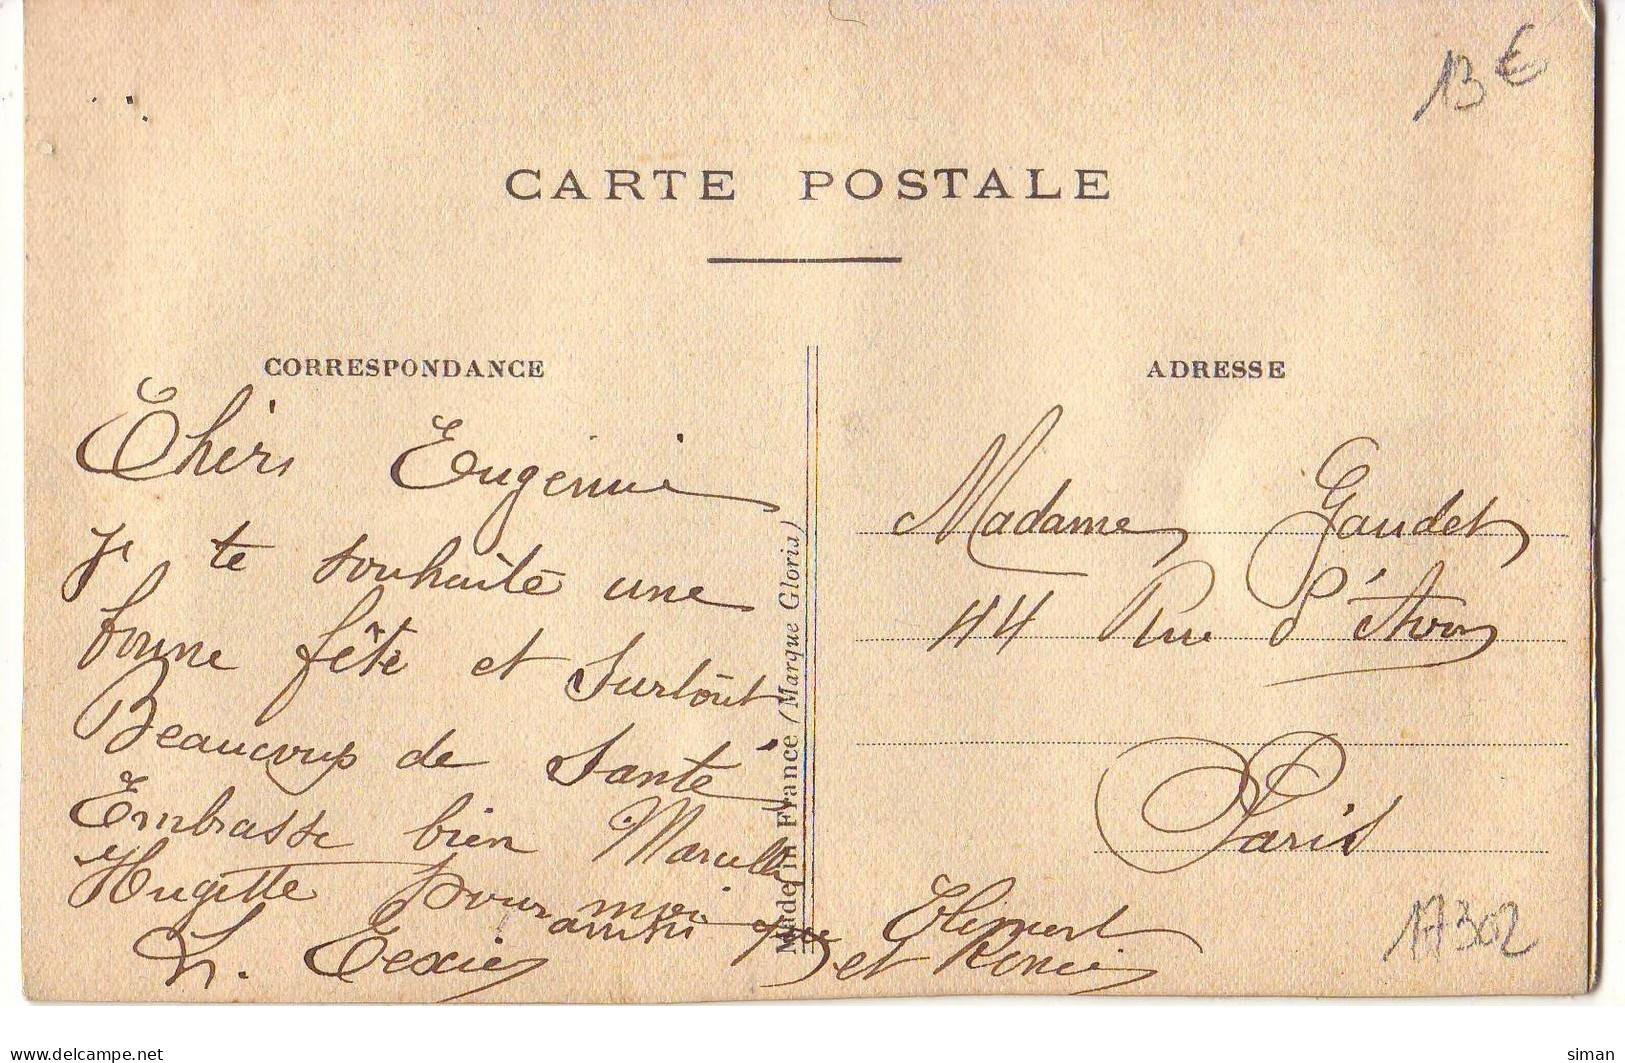 13 €
CARTE POSTALE
CORRESPONDANCE
Chèrs Eugénie
je te souhaite une
bonne fête et Surtout
Beaucoup de Santé
Embrasse bien Marcelle
Hugette pour moi
ainsi que Clément
et Renée
L.
Made in France (Marque Gloria)
ADRESSE
Madame Gaudet
44 Rue d'Avron
Paris
17302
delcampe.net
siman